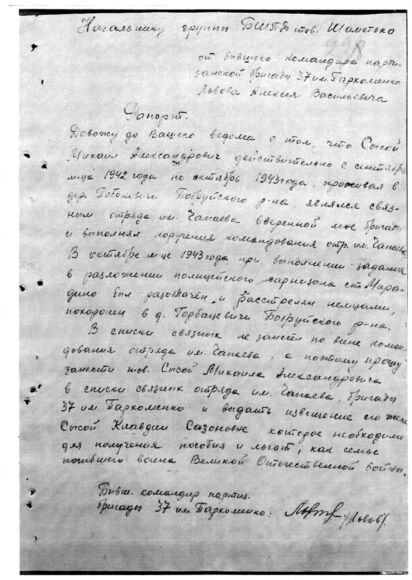 Начальнику группы БШПД тов. Шаметько
от бывшего командира парти-
занской бригады 37 им. Пархоменко
Львова Алексея Васильевича
Рапорт.
Довожу до Вашего ведома о том, что Сысой
Михаил Александрович действительно с сентября
м-ца 1942 года по октябрь 1943 года, проживая в
дер. Бобруйского р-на являлся связ-
ным отряда им. Чапаева вверенной мне бригады
и выполнял поручения командования отр. им. Чапаева
В октябре м-це 1943 года при выполнении задания
в разложении полицейского гарнизона ст. Мира-
дино был разоблачен и расстрелян немцами,
похоронен в д. Горбацевичи Бобруйского р-на.
В списки связных не занесен по вине коман-
дования отряда им. Чапаева, а поэтому прошу
занести тов. Сысой Михаила Александровича
в списки связных отряда им. Чапаева, бригады
37 им. Пархоменко и выдать извещение его жене
Сысой Клавдии Сазоновне которое необходимо
для получения пособия и льгот, как семье
погибшего воина Великой Отечественной войны.
Бывш. командир партиз.
бригады 37 им. Пархоменко: /Львов/